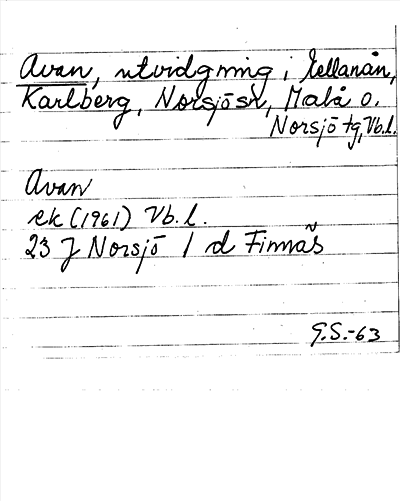 Avan, utvidgning i Mellanån,
Karlberg, Norsjö sn, Malå o.
Norsjö tg, Vb.l.
Avan
ek (1961) Vb. l.
23 J Norsjö 1 d Finnäs
G.S.-63